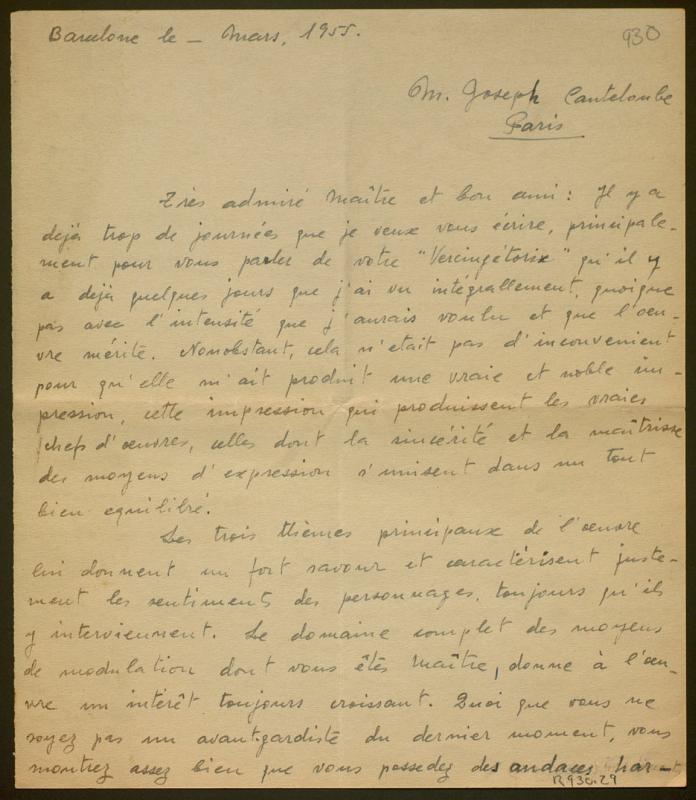 Barcelone le – Mars, 1955.
930
M. Joseph Canteloube
Paris
Très admiré Maître et bon ami: Il y a
dejà trop de journées que je veux vous écrire, principale-
ment pour vous parler de votre "Vercingétorix" qu'il y
a déjà quelques jours que j'ai vu intégrallement, quoique
pas avec l'intensité que j'aurais voulu et que l'oeu-
vre mérite. Nonobstant, cela n'était pas d'inconvenient
pour qu'elle m'ait produit une vraie et noble im-
pression, cette impression qui produissent les vraies
chefs d'œuvres, celles dont la sincérité et la maîtrisse
des moyens d'expression s'unisent dans un tout
bien equilibré.
Les trois thèmes principaux de l'œuvre
lui donnent un fort savour et caractérisent juste-
ment les sentiments des personnages, toujours qu'ils
y interviennent. Le domaine complet des moyens
de modulation dont vous êtês Maître, donne à l'oeu-
vre un intérêt toujours croissant. Quoi que vous ne
soyez pas un avantgardiste du dernier moment, vous
montrez assez bien que vous possedez des audaces har-
R930.29